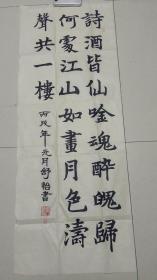 詩酒皆仙唫魂醉魄歸
何處江山如畫月色濤
聲共一樓
丙戌年元月舒怡書